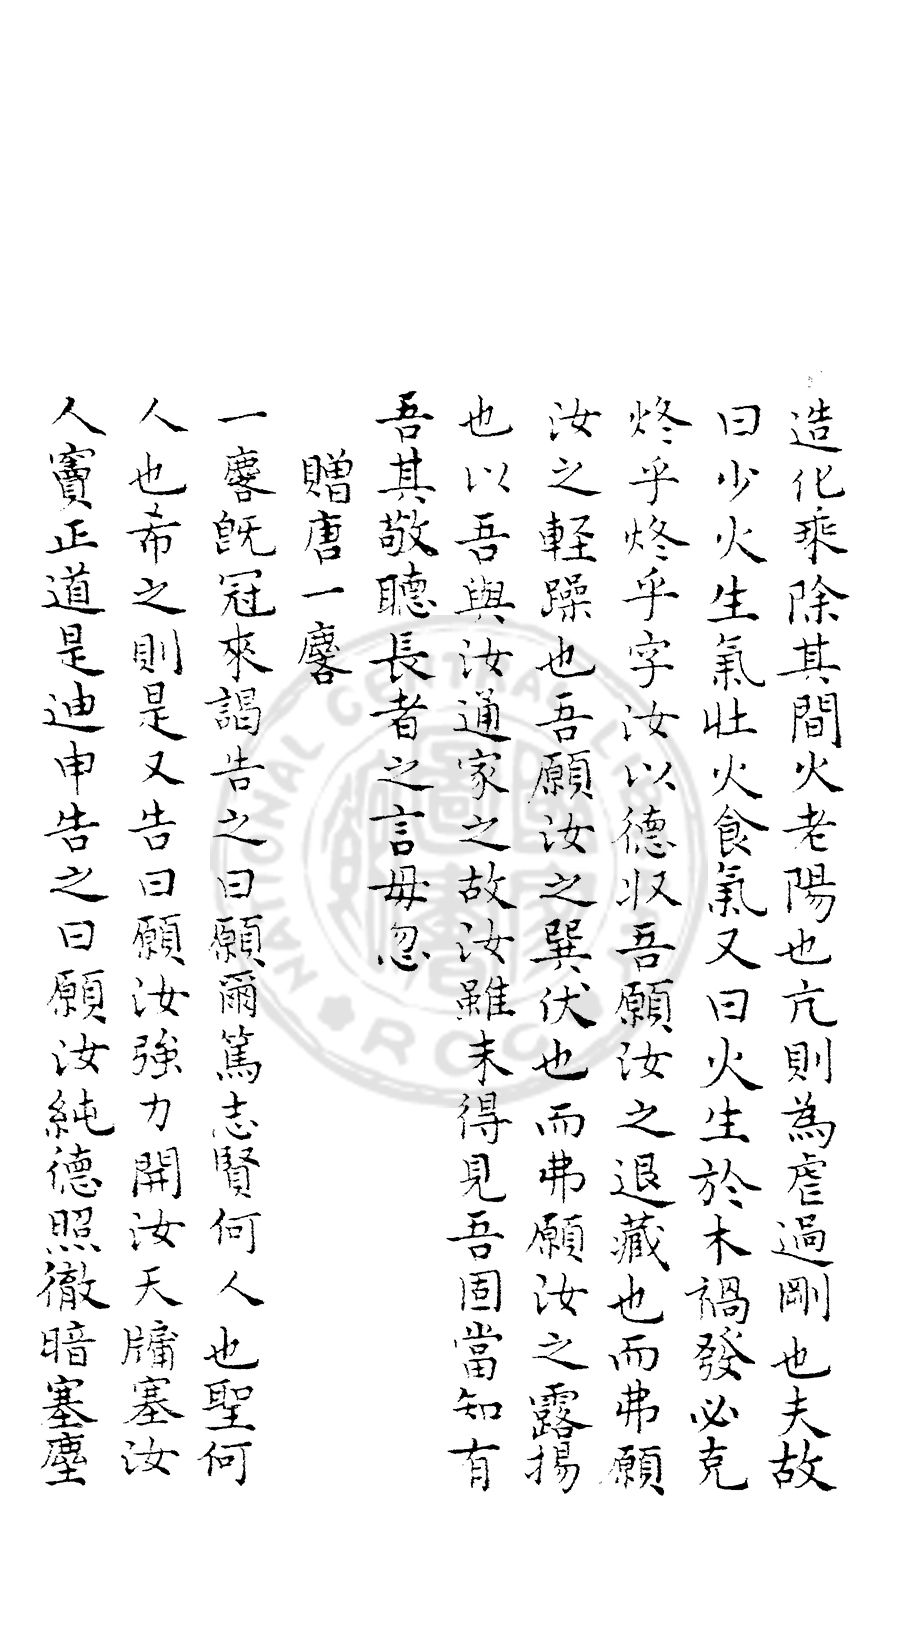 造化乘除其間火老陽也亢則為虐過剛也夫故
曰少火生氣壯火食氣又曰火生於木禍發必克
炵乎炵乎字汝以德收吾願汝之退藏也而弗願
汝之輕躁也吾願汝之巽伏也而弗願汝之露揚
也以吾與汝通家之故汝雖未得見吾固當知有
吾其敬聽長者之言毋忽
贈唐一麐
一麐旣冠來謁告之曰願爾篤志賢何人也聖何
人也希之則是又告曰願汝強力開汝天牗塞汝
人竇正道是迪申告之曰願汝純德照徹暗塞塵
NATIONAL CENTRAL LIBRARY
R.O.C